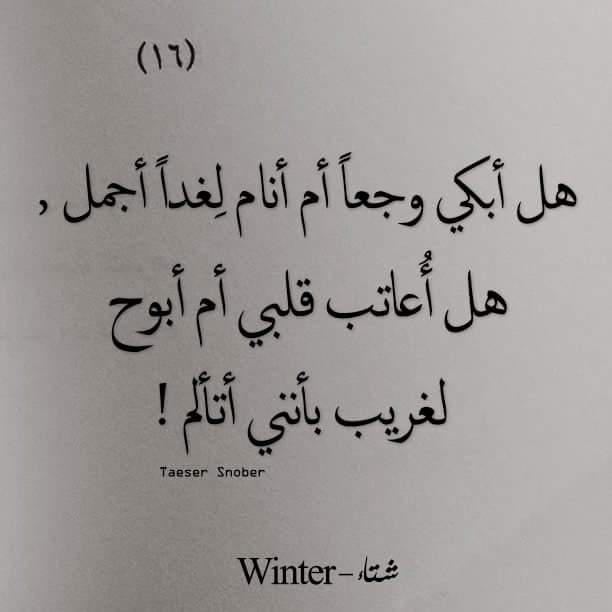 (١٦)
هل أبكي وجعاً أم أنام لِغداً أجمل ,
هل أُعاتب قلبي أم أبوح
لغريب بأنني أتألم !
Taeser Snober
Winter – شتاء